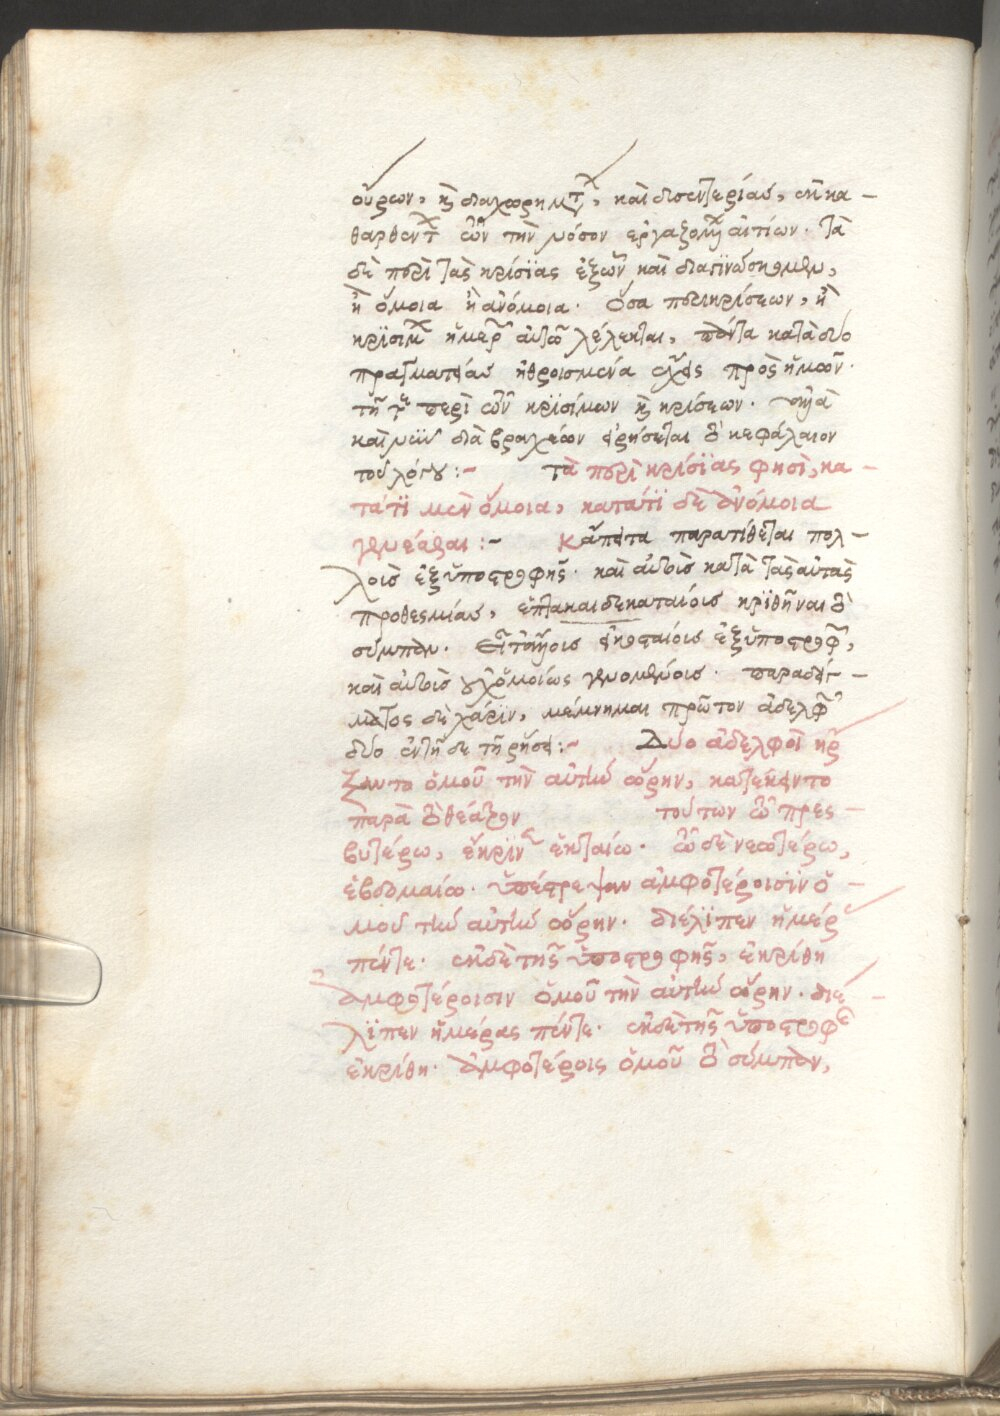 οὔρων, καὶ διαχωρημάτων, καὶ δισεντερίας, ἐκκα –
θαρθέντων τῶν τὴν νόσον ἐργαζομένων αἰτίων. τὰ
δὲ περὶ τὰς κρίσϊας ἐξ ὧν καὶ διαγϊνώσκομεν,
ἢ ὅμοια ἢ ἀνόμοια. Ὅσα περὶ κρίσεων, ἢ
κρϊσίμων ἡμερῶν αὐτῶ λέλεκται, πάντα κατὰ δύο
πραγματείας ἠθροισμένα ἔχεις πρὸς ἡμῶν.
τήν τε περὶ τῶν κρϊσίμων καὶ κρίσεων.
καὶ νῦν διὰ βραχέων εἰρήσεται τὸ κεφάλαιον
τοῦ λόγου :– τὰ περὶ κρίσϊας φησὶ, κα –
τάτϊ μὲν ὅμοια, κατάτϊ δὲ ἀνόμοια
γενέσθαι :– κἄπειτα παρατίθεται πολ –
λοῖς ἐξ ὑποστροφῆς. καὶ αὐτοῖς κατὰ τὰς αὐτὰς
προθεσμίας, ἑπτακαιδεκαταίοις κρϊθῆναι τὸ
σύμπαν. Εἶτ' ἄλλοις ἑκταίοις ἐξ ὑποστροφῆς,
καὶ αὐτοῖς οὐχ ὁμοίως γενομένοις. παραδείγ –
ματος δὲ χάρϊν, μέμνημαι πρῶτον ἀδελφῶν
δύο ἐν τῆδε τῆ ῥήσει :– Δύο ἀδελφοὶ ἤρ
ξαντο ὁμοῦ τὴν αὐτὴν ὥρην, κατέκειντο
παρὰ τὸ θέατρον τούτων τῶ πρες –
βυτέρω, ἔκρϊνεν ἑκταίω. τῶ δὲ νεωτέρω,
ἑβδομαίω. ὑπέστρεψαν ἀμφοτέροισϊν ὁ –
μοῦ τὴν αὐτὴν ὥρην. διέλϊπεν ἡμέρας
πέντε. ἐκ δὲ τῆς ὑποστροφῆς, ἐκρίθη
ἀμφοτέροισιν ὁμοῦ τὴν αὐτὴν ὥρην. διέ –
λϊπεν ἡμέρας πέντε. ἐκ δὲ τῆς ὑποστροφῆς
ἐκρίθη. ἀμφοτέροις ὁμοῦ τὸ σύμπαν,